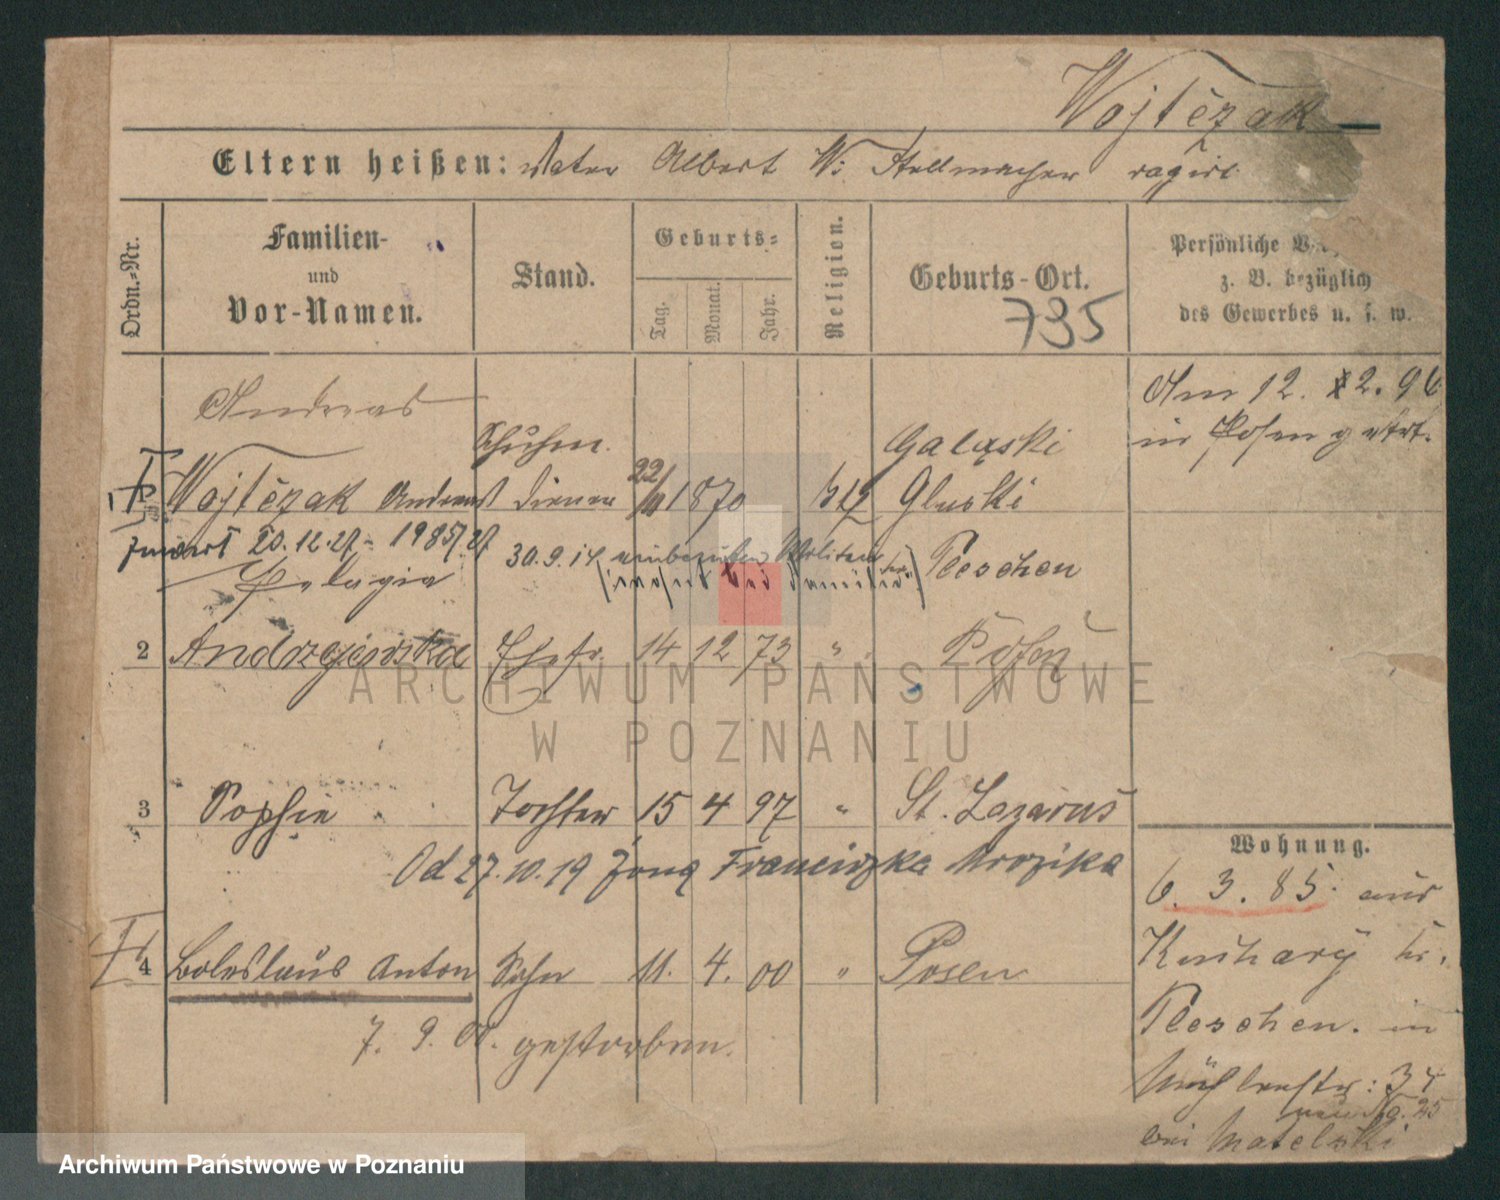 Wojtczak
Eltern heißen: Vater Albert W: Stellmacher
Ordn.-Nr.
Familien-
und
Vor-Namen.
Stand.
Geburts-
Tag.
Monat.
Jahr.
Religion.
Geburts-Ort.
735
Persönliche
z. B. bezüglich
des Gewerbes u. s. w.
Andreas
Am 12. 2. 96
in Posen getrt.
Schuhm.
Galąski
Wojtczak Andreas diener 22/11 1870 Gluski
zmarł 20.12.27 - 1985/27
30.9.14
Pleschen
Pelagia
2 Andrzejewska Ehefr. 14 12 73 " Posen
3 Sophie Tochter 15 4 97 " St. Lazarus
Od 27.10.19 żona Franciszka Mrozika
4 Boleslaus Anton Sohn 11. 4. 00 " Posen
7. 9. 00. gestorben.
Wohnung.
6. 3. 85. aus
Kuchary kr.
Pleschen. in
Mühlenstr: 34
No. 25
bei Matelski
ARCHIWUM PAŃSTWOWE
W POZNANIU
Archiwum Państwowe w Poznaniu